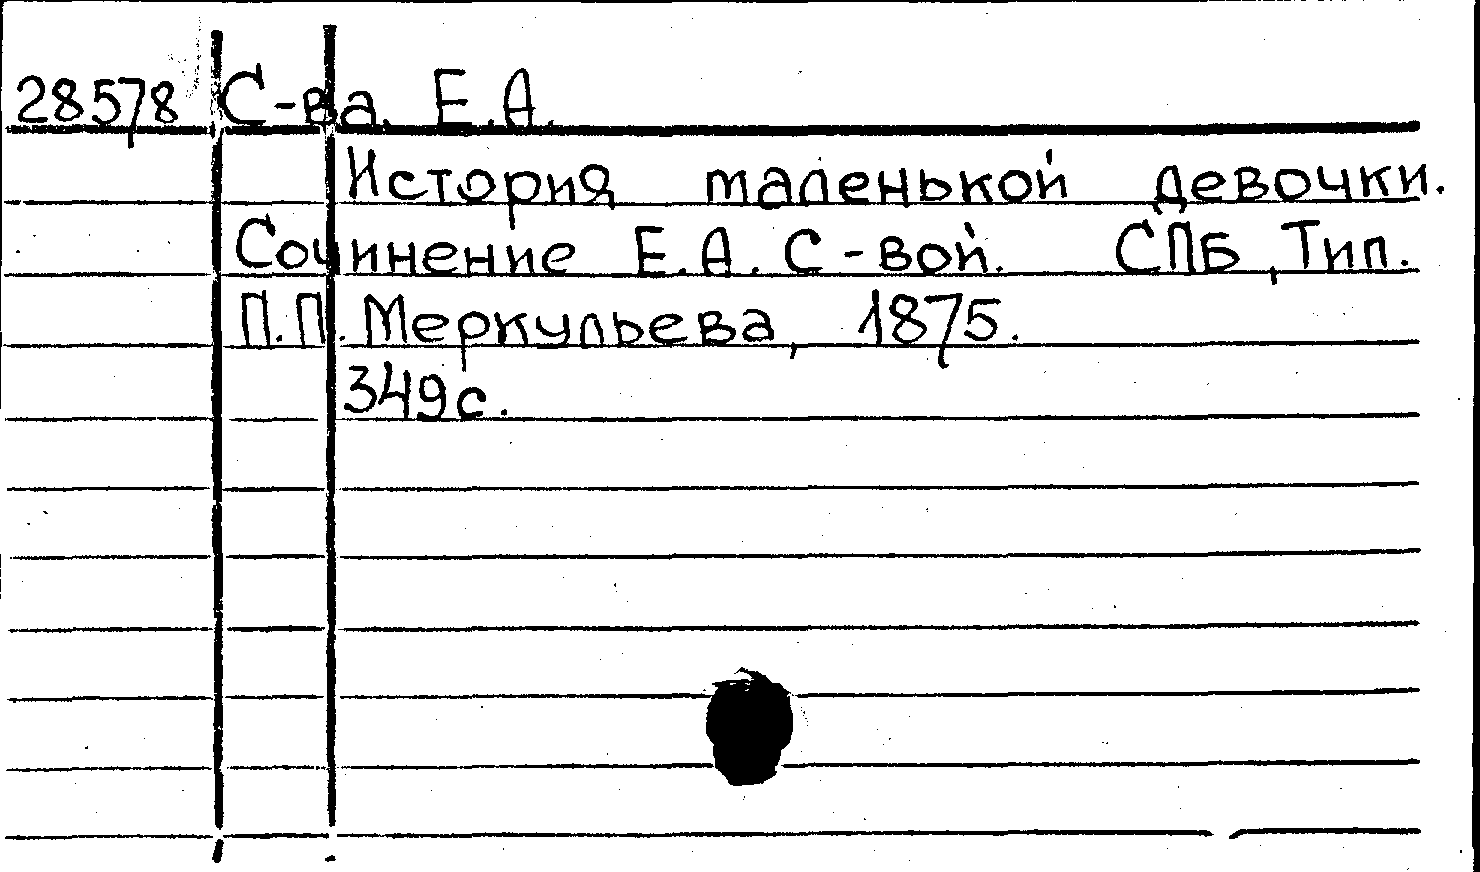 28578 С-ва. Е.А.
История маленькой девочки.
Сочинение Е.А. С-вой. СПБ, Тип.
П.П. Меркульева, 1875.
349с.